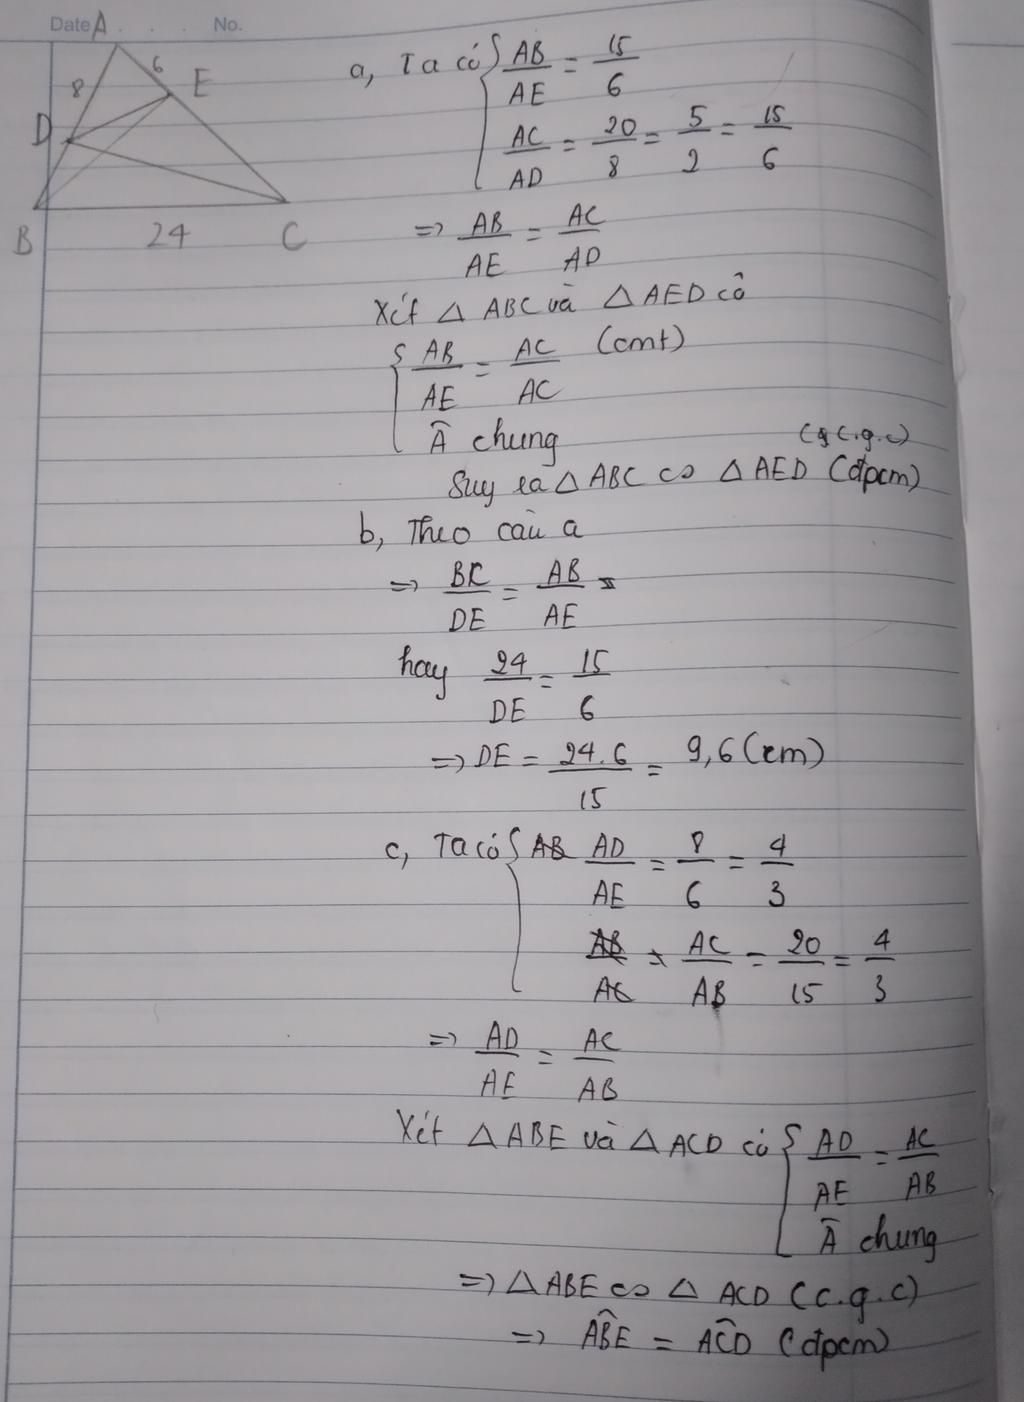 Date . . . No.
A
8 6
E
D
B 24 C
a, Ta có { AB/AE = 15/6
AC/AD = 20/8 = 5/2 = 15/6
=> AB/AE = AC/AD
Xét △ ABC và △ AED có
{ AB/AE = AC/AC (cmt)
Â chung
(c.g.c)
Suy ra △ ABC ∽ △ AED (đpcm)
b, Theo câu a
=> BC/DE = AB/AE
hay 24/DE = 15/6
=> DE = 24.6/15 = 9,6 (cm)
c, Ta có { AB AD/AE = 8/6 = 4/3
AB/AC = AC/AB = 20/15 = 4/3
=> AD/AE = AC/AB
Xét △ ABE và △ ACD có { AD/AE = AC/AB
Â chung
=> △ ABE ∽ △ ACD (c.g.c)
=> ABE = ACD (đpcm)